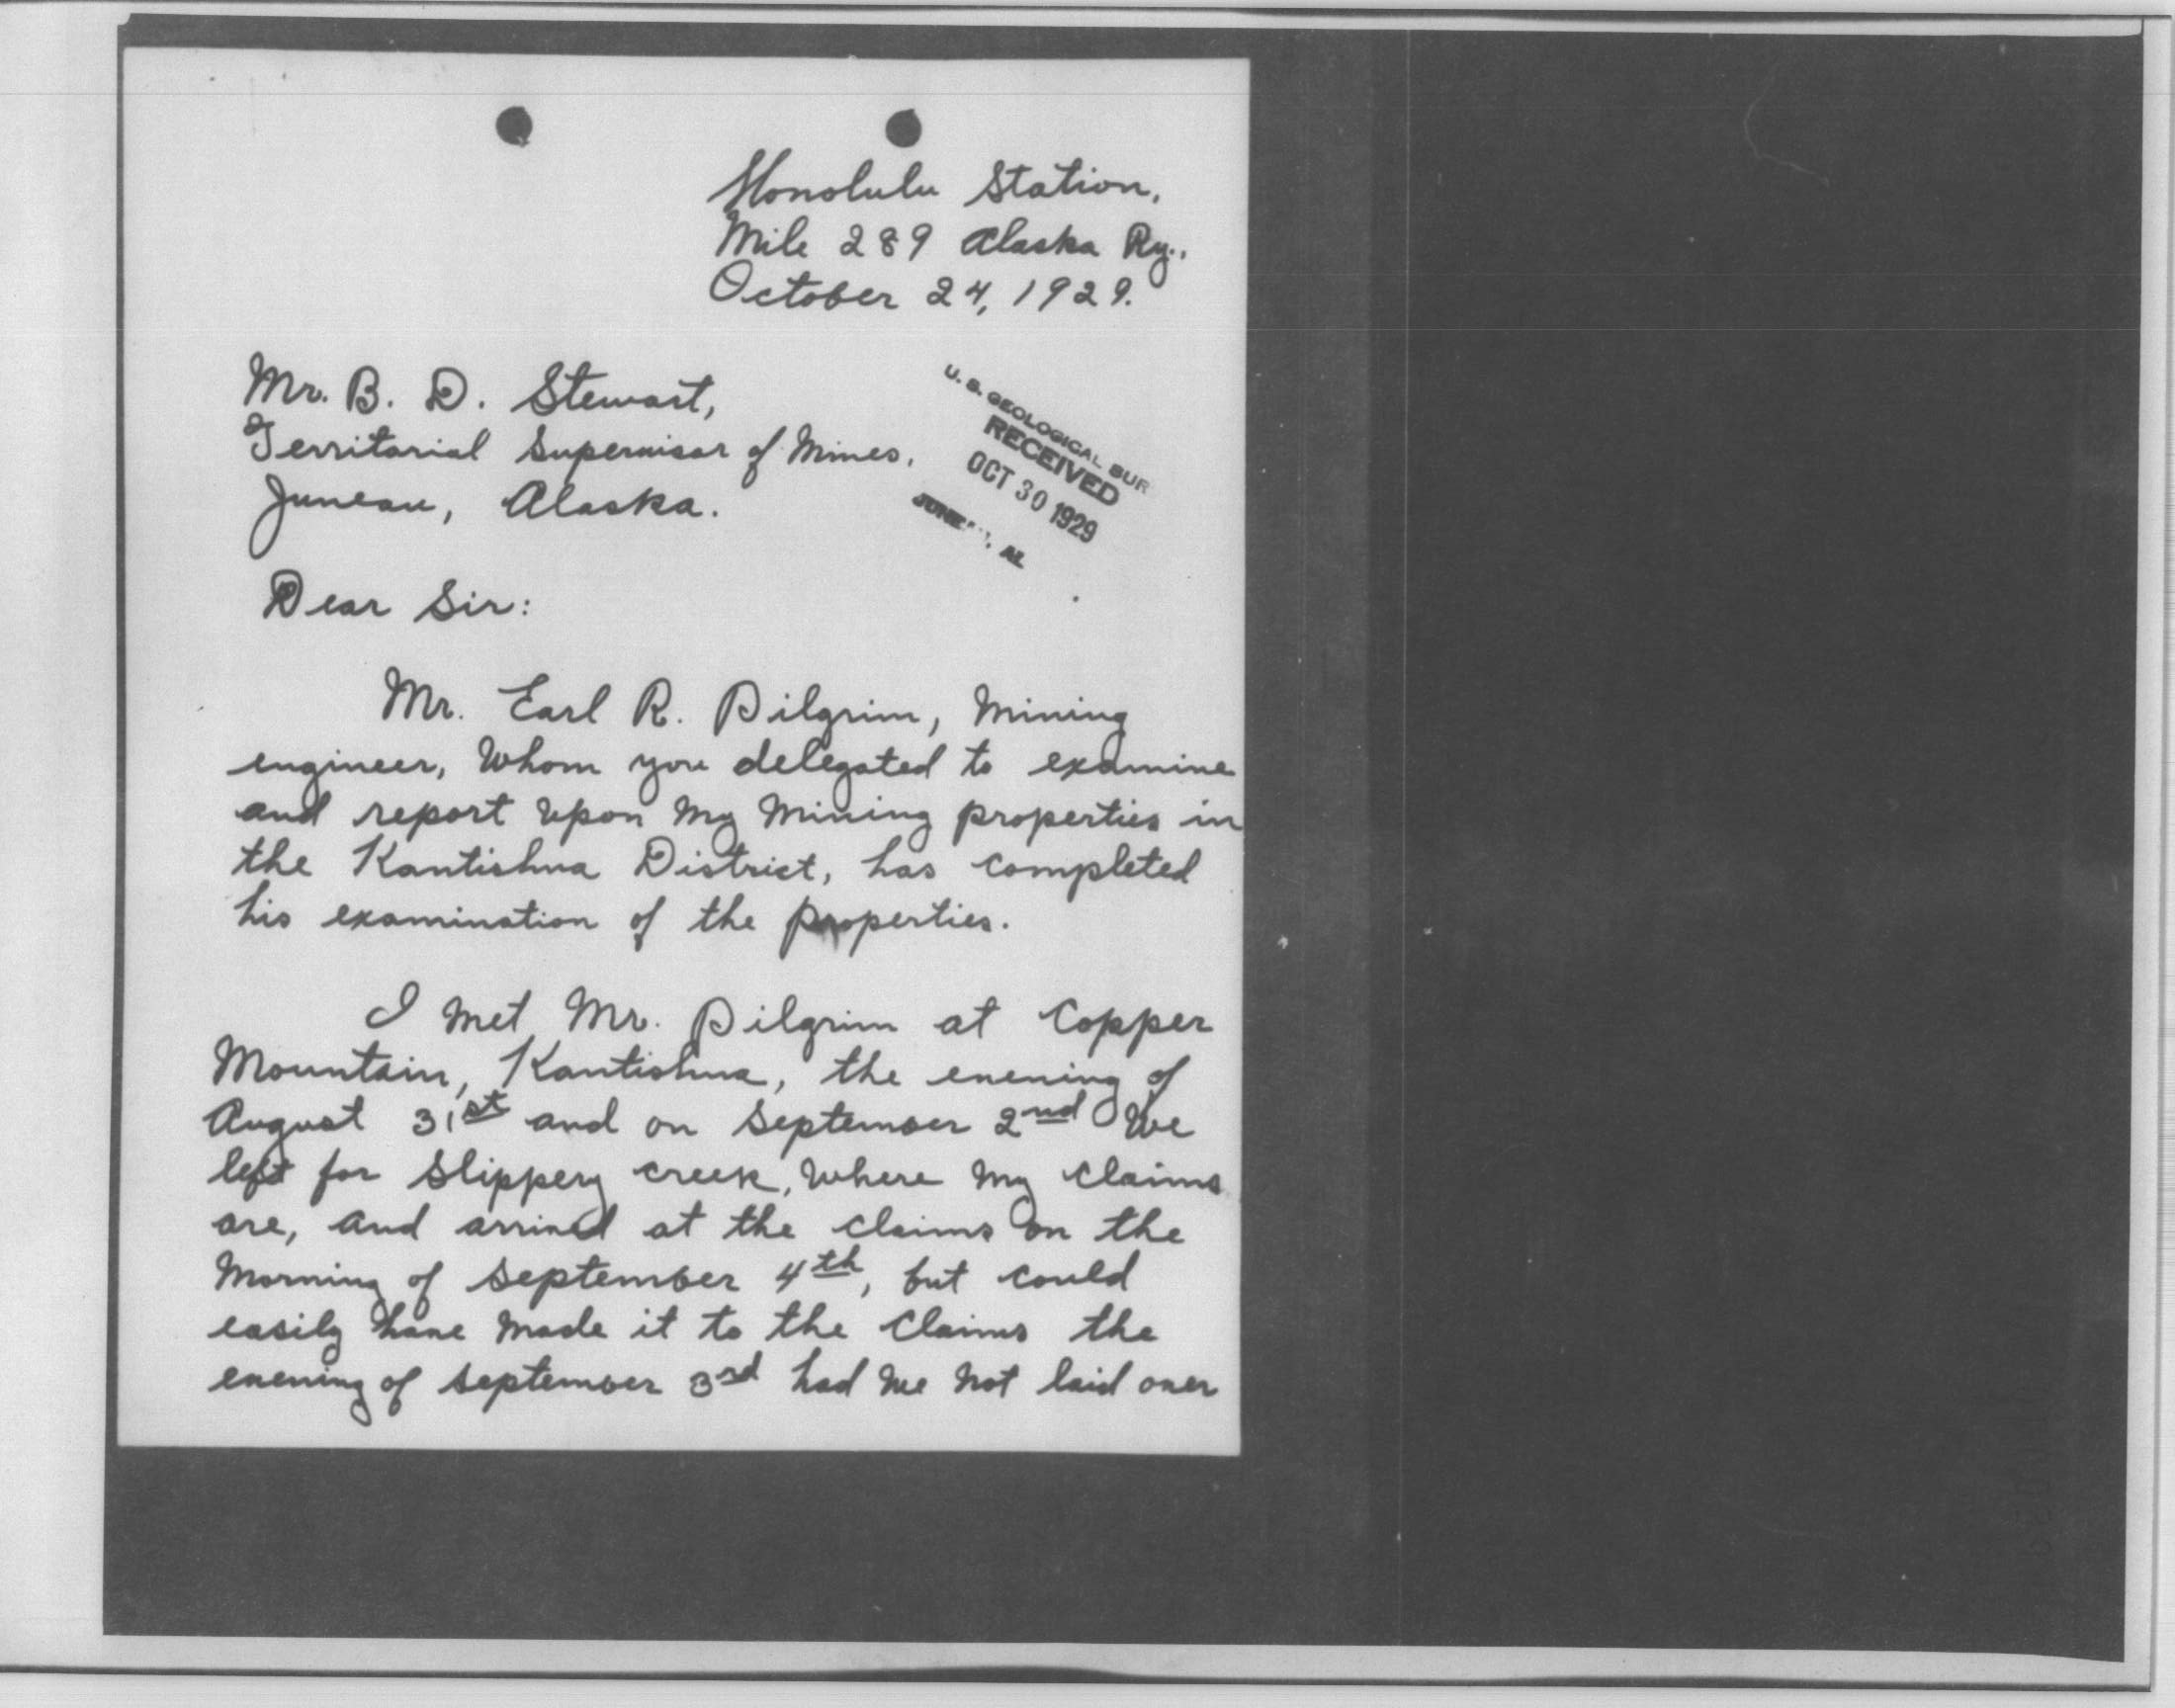 Honolulu Station,
Mile 289 Alaska Ry.,
October 24, 1929.
Mr. B. D. Stewart,
Territorial Supervisor of Mines,
Juneau, Alaska.
U. S. GEOLOGICAL SUR
RECEIVED
OCT 30 1929
AL
Dear Sir:
Mr. Earl R. Pilgrim, Mining
engineer, Whom you delegated to examine
and report upon my mining properties in
the Kantishna District, has completed
his examination of the properties.
I met Mr. Pilgrim at Copper
Mountain, Kantishna, the evening of
August 31st and on September 2nd We
left for Slippery creek, where my claims
are, and arrived at the claims on the
morning of September 4th, but could
easily have made it to the claims the
evening of September 3rd had we not laid over